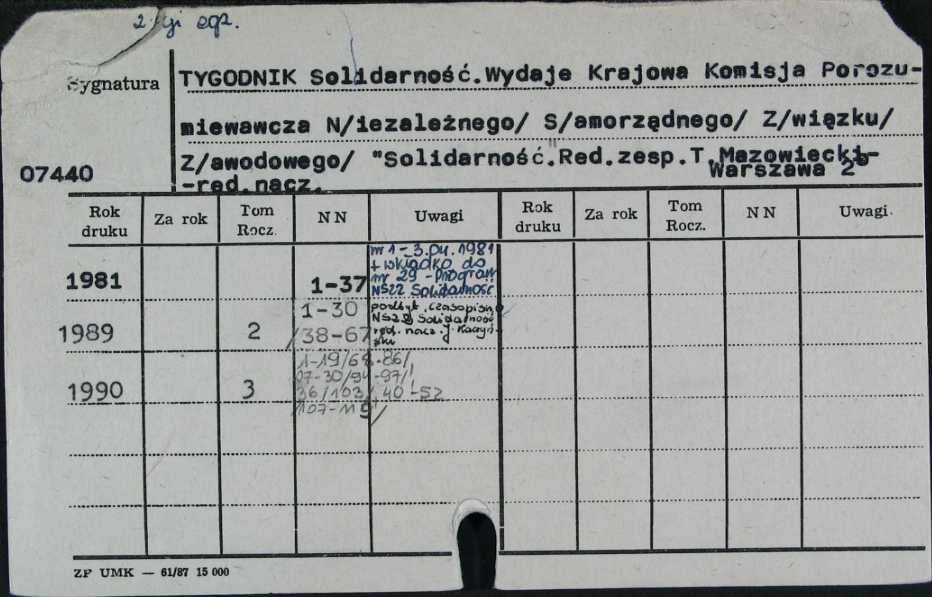 2-gi egz.
Sygnatura
TYGODNIK Solidarność.Wydaje Krajowa Komisja Porozu-
miewawcza N/iezależnego/ S/amorządnego/ Z/wiązku/
Z/awodowego/ "Solidarność".Red.zesp.T.Mazowiecki-
-red.nacz. Warszawa
07440
Rok druku Za rok Tom Rocz. NN Uwagi Rok druku Za rok Tom Rocz. NN Uwagi
nr 1 - 3.04.1981
+ wkładka do
nr 29 - Program
NSZZ Solidarność
1981 1-37
podtyt. czasopismo
NSZZ Solidarność
red. nacz. J. Kaczyń-
ski
1989 2 1-30
/38-67
1990 3 1-19/68-86/,
36/103/ 40-52
ZP UMK — 61/87 15 000